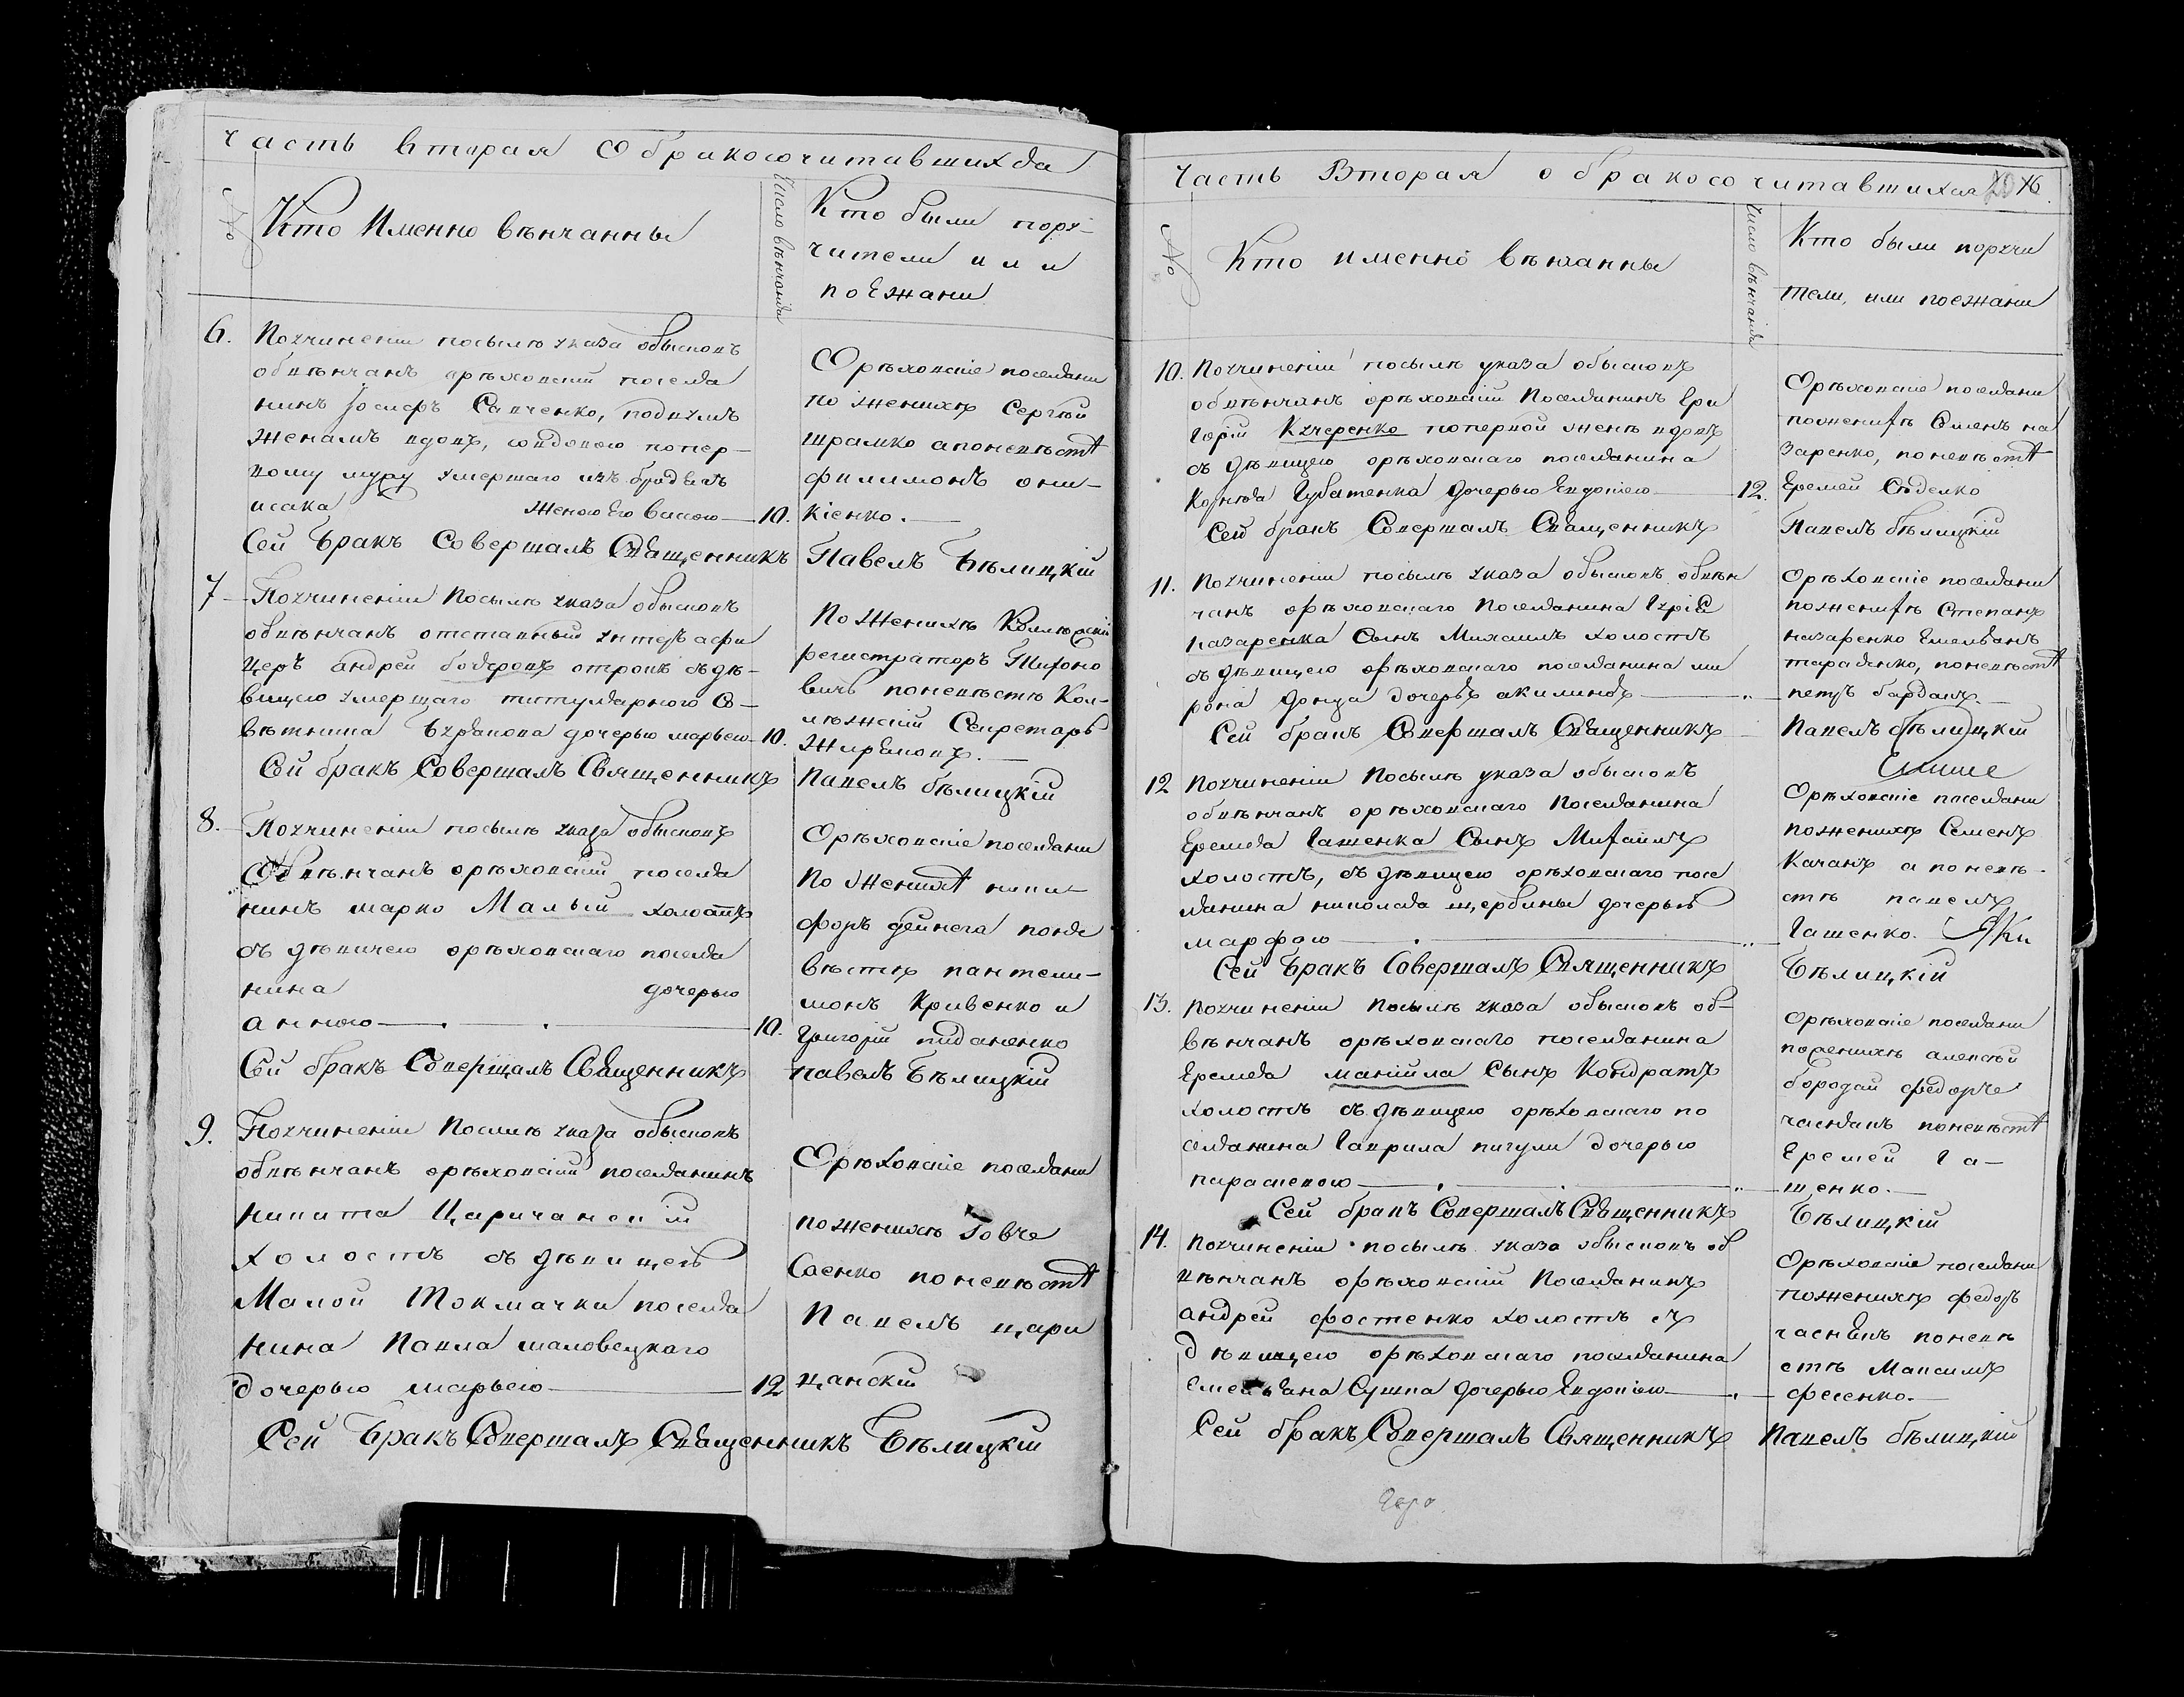 Часть вторая О бракосочитавшихся
№
Кто Именно вѣнчанны
Число вѣнчанія
Кто были пору-
чители или
поезжани
6. Поучиненіи посылѣ указа обысковъ
обвѣнчанъ орѣховскій поселя
нинъ Іосифъ Савченко, подвумъ
женамъ вдовъ, совдовою попер-
вому мужу умершаго
исака женою Его 10.
Орѣховскіе поселяни
по женихѣ Сергѣй
шрамко а поневѣстѣ
филимонъ они-
кіенко.
Сей Бракъ Совершалъ Священникъ Павелъ Бѣлицкій
7 Поучиненіи Посылѣ указа обысковъ
обвѣнчанъ отставный унтеръ афи
церъ андрей отрокъ съ дѣ-
вицею умершаго титулярного Со-
вѣтника дочерью марьею 10.
По Женихѣ Коллежскій
регистраторъ
вичъ поневѣстѣ Кол-
лѣжскій Секретарь
Сей бракъ Совершалъ Священникъ Павелъ бѣлицкій
8. Поучиненіи посылѣ указа обысковъ
Обвѣнчанъ орѣховскій поселя
нинъ марко Малый холостъ
съ дѣвичею орѣховскаго поселя
нина дочерью
анною 10.
Орѣховскіе поселяни
По Женихѣ ники-
форъ дейнега поне
вѣстѣ пантели-
монъ Кривенко и
Григорій пидоненко
Сей бракъ Совершалъ Священникъ павелъ Бѣлицкій
9. Поучиненіи Посылѣ указа обысковъ
обвѣнчанъ орѣховскій поселянинъ
никита Царичанскій
холостъ съ дѣвицею
Малой Токмачки поселя
нина Павла маловецкаго
дочерью марьею 12
Орѣховскіе поселяни
поженихѣ
Саенко поневѣстѣ
Павелъ цари
цанскій
Сей Бракъ Совершалъ Священникъ Бѣлицкій
Часть Вторая о бракосочитавшихся 16.
№
Кто именно вѣнчанны
Число вѣнчанія
Кто были поручи
тели, или поезжани
10. Поучиненіи посылѣ указа обысковъ
обвѣнчанъ орѣховскій Поселянинъ Гри
горій Кучеренко поперной женѣ вдовъ
съ дѣвицею орѣховскаго поселянина
Корнѣя Губатенка дочерью Евдокіею 12.
Орѣховскіе поселяни
поженихѣ Семенъ на
заренко, поневѣстѣ
Еремей Сѣделко
Сей бракъ Совершалъ Священникъ Павелъ бѣлицкій
11. Поучиненіи посылѣ указа обысковъ обвѣн
чанъ орѣховскаго Поселянина
назаренка Сынъ Михаилъ холостъ
съ дѣвицею орѣховскаго поселянина ми
рона донца дочерью акилиною ..
Орѣховскіе поселяни
поженихѣ Степанъ
назаренко Емельянъ
тараненко, поневѣстѣ
петръ барданъ.
Сей бракъ Совершалъ Священникъ Павелъ бѣлицкій
12 Поучиненіи Посылѣ указа обысковъ
обвѣнчанъ орѣховскаго Поселянина
Еремѣя Гашенка Сынъ Михаилъ
холостъ, съ дѣвицею орѣховскаго посе
лянина николая щербины дочерью
марфою ..
Орѣховскіе поселяни
поженихѣ Семенъ
Качанъ а поневѣ-
стѣ павелъ
Гашенко.
Сей Бракъ Совершалъ Священникъ Бѣлицкій
13. Поучиненіи Посылѣ указа обысковъ об-
вѣнчанъ орѣховскаго поселянина
Еремѣя манійла Сынъ Кондратъ
холостъ съ дѣвицею орѣховскаго по
селянина Гаврила пигули дочерью
параскевою ..
Орѣховскіе поселяни
поженихѣ алексѣй
бородай федоръ
часнакъ поневѣстѣ
Еремей Га-
шенко.
Сей бракъ Совершалъ Священникъ Бѣлицкій
14. Поучиненіи посылѣ указа обысковъ об
вѣнчанъ орѣховскій Поселянинъ
андрей фостенко холостъ съ
дѣвицею орѣховскаго поселянина
Емельяна Сушка дочерью Евдокіею ..
Орѣховскіе поселяни
поженихѣ федоръ
часныкъ поневѣ
стѣ Максимъ
фесенко.
Сей бракъ Совершалъ Священникъ Павелъ бѣлицкій